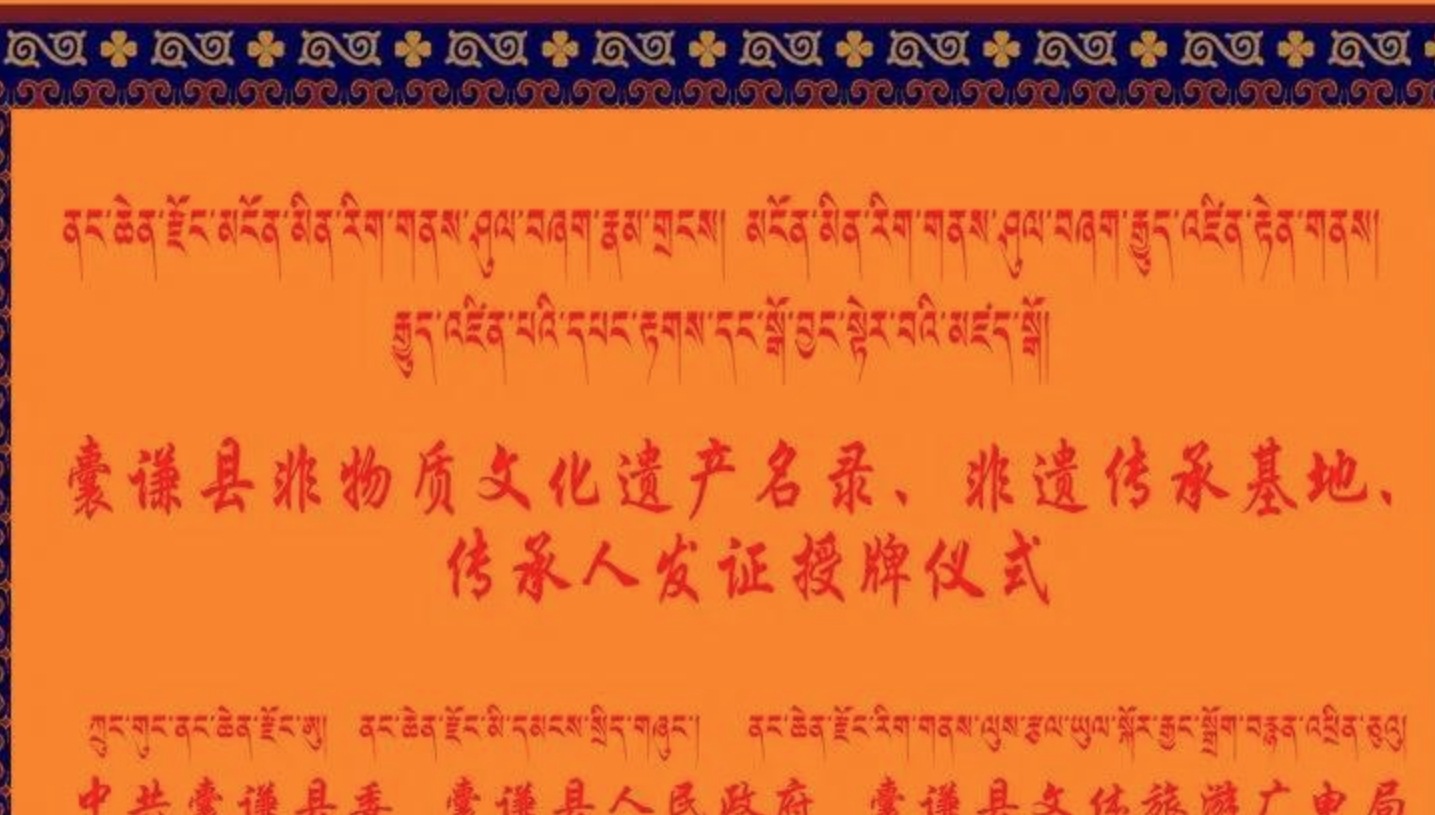 ནང་ཆེན་རྫོང་མངོན་མིན་རིག་གནས་ཤུལ་བཞག་རྣམ་གྲངས། མངོན་མིན་རིག་གནས་ཤུལ་བཞག་རྒྱུད་འཛིན་རྟེན་གནས།
རྒྱུད་འཛིན་པའི་དཔང་རྟགས་དང་སྒོ་བྱང་སྟེར་བའི་མཛད་སྒོ།།
囊谦县非物质文化遗产名录、非遗传承基地、
传承人发证授牌仪式
ཀྲུང་གུང་ནང་ཆེན་རྫོང་ཨུ། ནང་ཆེན་རྫོང་མི་དམངས་སྲིད་གཞུང་། ནང་ཆེན་རྫོང་རིག་གནས་ལུས་རྩལ་ཡུལ་སྐོར་རྒྱང་སྒྲོག་བརྙན་འཕྲིན་ཅུའུ།
中共囊谦县委 囊谦县人民政府 囊谦县文体旅游广电局